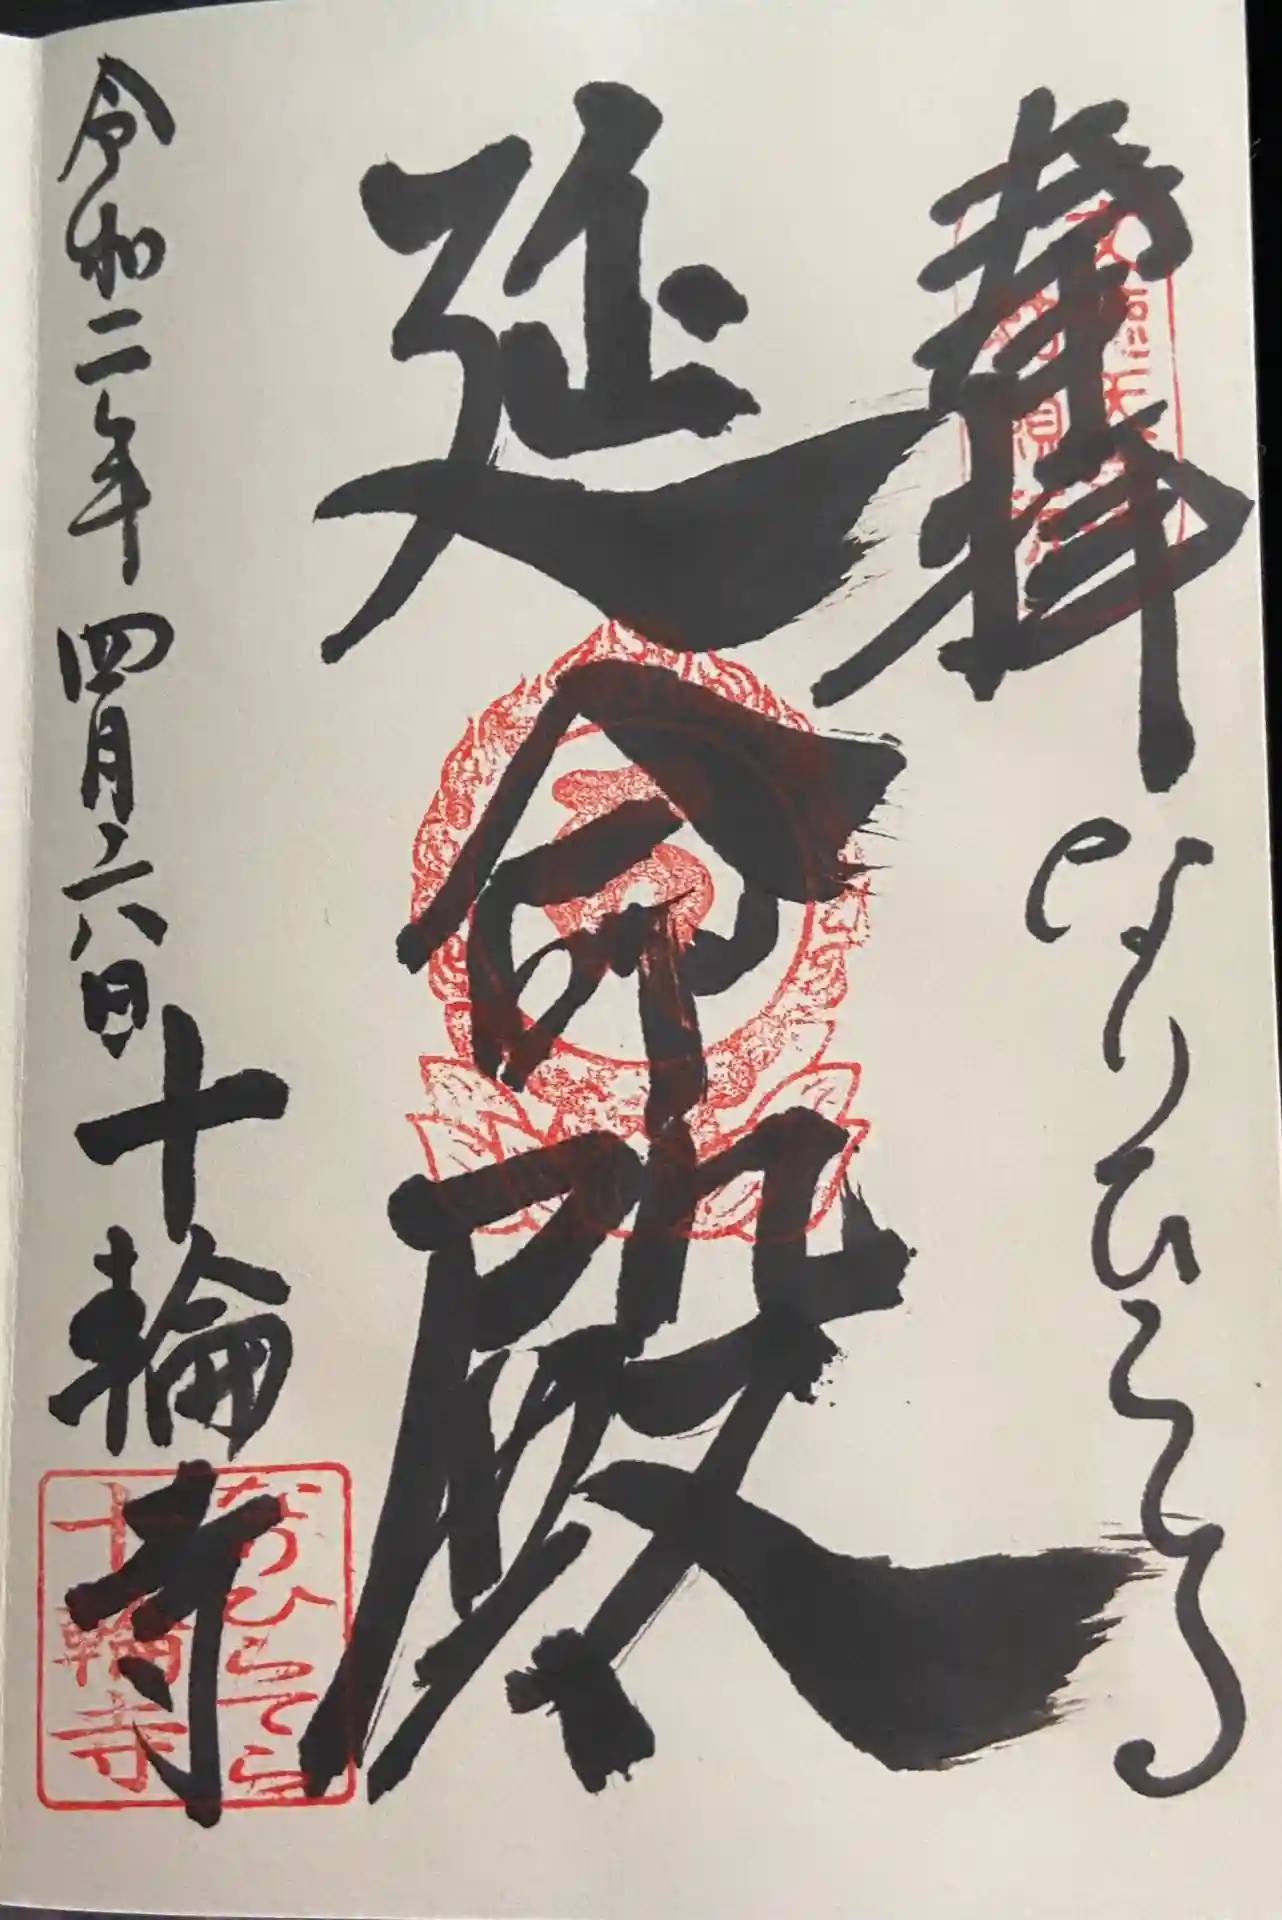 奉拝 なりひらてら
延命殿
令和二年四月二六日 十輪寺
なりひらてら
十輪寺